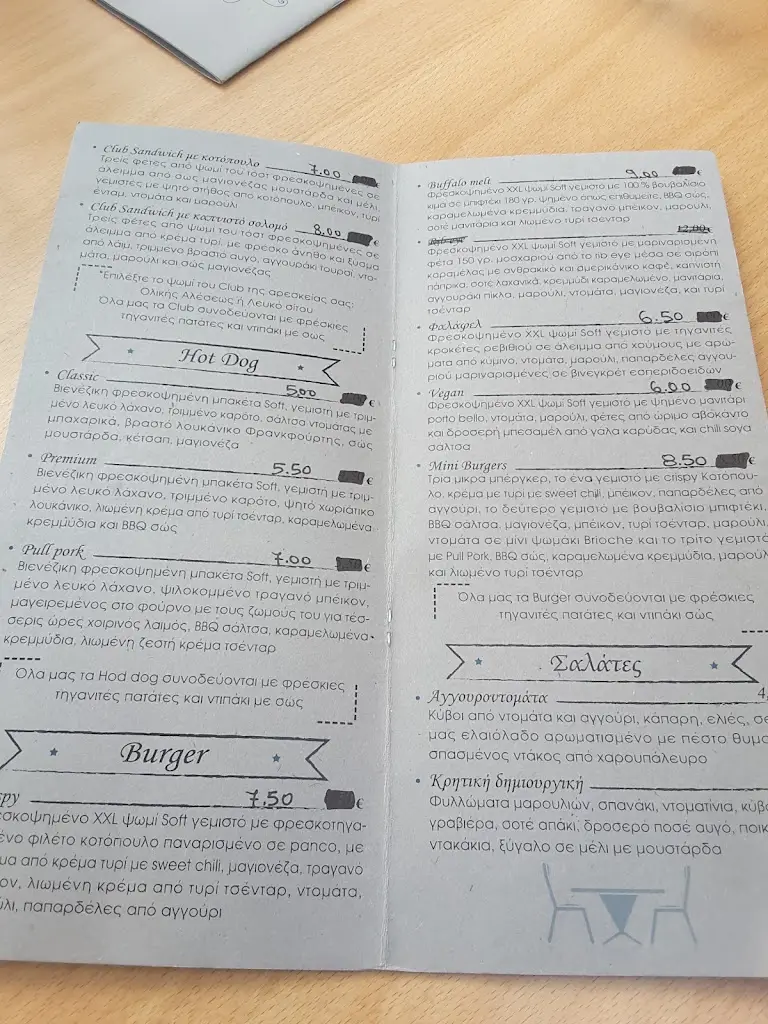 Club Sandwich με κοτόπουλο 7.00 €
Τρεις φέτες από ψωμί του τόστ φρεσκοψημένες σε
άλειμμα από σως μαγιονέζας μουστάρδα και μέλι,
γεμιστές με ψητό στήθος από κοτόπουλο, μπέικον, τυρί
ένταμ, ντομάτα και μαρούλι
Club Sandwich με καπνιστό σολομό 8,00 €
Τρεις φέτες από ψωμί του τόστ φρεσκοψημένες σε
άλειμμα από κρέμα τυρί, με φρέσκο άνηθο και ξύσμα
από λάιμ, τριμμένο βραστό αυγό, αγγουράκι τουρσί, ντο-
μάτα, μαρούλι και σως μαγιονέζας
*Επιλέξτε το ψωμί του Club της αρεσκείας σας:
Ολικής Αλέσεως ή Λευκό σίτου
Όλα μας τα Club συνοδεύονται με φρέσκιες
τηγανιτές πατάτες και ντιπάκι με σως
Hot Dog
Classic 5,00 €
Βιενέζικη φρεσκοψημένη μπακέτα Soft, γεμιστή με τριμ-
μένο λευκό λάχανο, τριμμένο καρότο, σάλτσα ντομάτας με
μπαχαρικά, βραστό λουκάνικο Φρανκφούρτης, σως
μουστάρδα, κέτσαπ, μαγιονέζα
Premium 5.50 €
Βιενέζικη φρεσκοψημένη μπακέτα Soft, γεμιστή με τριμ-
μένο λευκό λάχανο, τριμμένο καρότο, ψητό χωριάτικο
λουκάνικο, λιωμένη κρέμα από τυρί τσένταρ, καραμελωμένα
κρεμμύδια και BBQ σως
Pull pork 7.00 €
Βιενέζικη φρεσκοψημένη μπακέτα Soft, γεμιστή με τριμ-
μένο λευκό λάχανο, ψιλοκομμένο τραγανό μπέικον,
μαγειρεμένος στο φούρνο με τους ζωμούς του για τέσ-
σερις ώρες χοιρινός λαιμός, BBQ σάλτσα, καραμελωμένα
κρεμμύδια, λιωμένη ζεστή κρέμα τσένταρ
Όλα μας τα Hod dog συνοδεύονται με φρέσκιες
τηγανιτές πατάτες και ντιπάκι με σως
Burger
spy 7.50 €
εσκοψημένο XXL ψωμί Soft γεμιστό με φρεσκοτηγα-
ένο φιλέτο κοτόπουλο παναρισμένο σε panco, με
μα από κρέμα τυρί με sweet chili, μαγιονέζα, τραγανό
ον, λιωμένη κρέμα από τυρί τσένταρ, ντομάτα,
ύλι, παπαρδέλες από αγγούρι
Buffalo melt 9,00 €
Φρεσκοψημένο XXL ψωμί Soft γεμιστό με 100 % βουβαλίσιο
κιμά σε μπιφτέκι 180 γρ. ψημένο όπως επιθυμείτε, BBQ σως,
καραμελωμένα κρεμμύδια, τραγανό μπέικον, μαρούλι,
σοτέ μανιτάρια και λιωμένο τυρί τσένταρ
Rib eye 12,00€
Φρεσκοψημένο XXL ψωμί Soft γεμιστό με μαριναρισμένη
φέτα 150 γρ. μοσχαριού από το rib eye μέσα σε σιρόπι
καραμέλας με ανθρακικό και αμερικάνικο καφέ, καπνιστή
πάπρικα, σοτέ λαχανικά, κρεμμύδι καραμελωμένο, μανιτάρια,
αγγουράκι πίκλα, μαρούλι, ντομάτα, μαγιονέζα, και τυρί
τσένταρ
Φαλάφελ 6.50 €
Φρεσκοψημένο XXL ψωμί Soft γεμιστό με τηγανιτές
κροκέτες ρεβιθιού σε άλειμμα από χούμους με αρώ-
ματα από κύμινο, ντομάτα, μαρούλι, παπαρδέλες αγγου-
ριού μαριναρισμένες σε βινεγκρέτ εσπεριδοειδών
Vegan 6.00 €
Φρεσκοψημένο XXL ψωμί Soft γεμιστό με ψημένο μανιτάρι
porto bello, ντομάτα, μαρούλι, φέτες από ώριμο αβοκάντο
και δροσερή μπεσαμέλ από γάλα καρύδας και chili soya
σάλτσα
Mini Burgers 8.50 €
Τρία μικρά μπέργκερ, το ένα γεμιστό με crispy Κοτόπου-
λο, κρέμα με τυρί με sweet chili, μπέικον, παπαρδέλες από
αγγούρι, το δεύτερο γεμιστό με βουβαλίσιο μπιφτέκι,
BBQ σάλτσα, μαγιονέζα, μπέικον, τυρί τσένταρ, μαρούλι,
ντομάτα σε μίνι ψωμάκι Brioche και το τρίτο γεμιστό
με Pull Pork, BBQ σώς, καραμελωμένα κρεμμύδια, μαρούλ
και λιωμένο τυρί τσένταρ
Όλα μας τα Burger συνοδεύονται με φρέσκιες
τηγανιτές πατάτες και ντιπάκι σώς
Σαλάτες
Αγγουροντομάτα 4,
Κύβοι από ντομάτα και αγγούρι, κάπαρη, ελιές, σε
μας ελαιόλαδο αρωματισμένο με πέστο θυμα
σπασμένος ντάκος από χαρουπάλευρο
Κρητική δημιουργική
Φυλλώματα μαρουλιών, σπανάκι, ντοματίνια, κύβο
γραβιέρα, σοτέ απάκι, δροσερό ποσέ αυγό, ποικ
ντακάκια, ξύγαλο σε μέλι με μουστάρδα